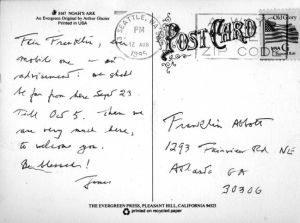 5347 NOAH'S ARK
An Evergreen Original by Arthur Glazier
Printed in USA
SEATTLE, WA
PM
12 AUG
1995
POST CARD
Old Glory
USA G
CODE
Franklin, I'm
mobile one – an
advisement: we shall
be far from here Sept 23
Till Oct 5. Then we
are very much here,
to welcome you.
Be blessed!
James
Franklin Abbott
1293 Fairview Rd. NE
Atlanta GA
30306
THE EVERGREEN PRESS, PLEASANT HILL, CALIFORNIA 94523
printed on recycled paper